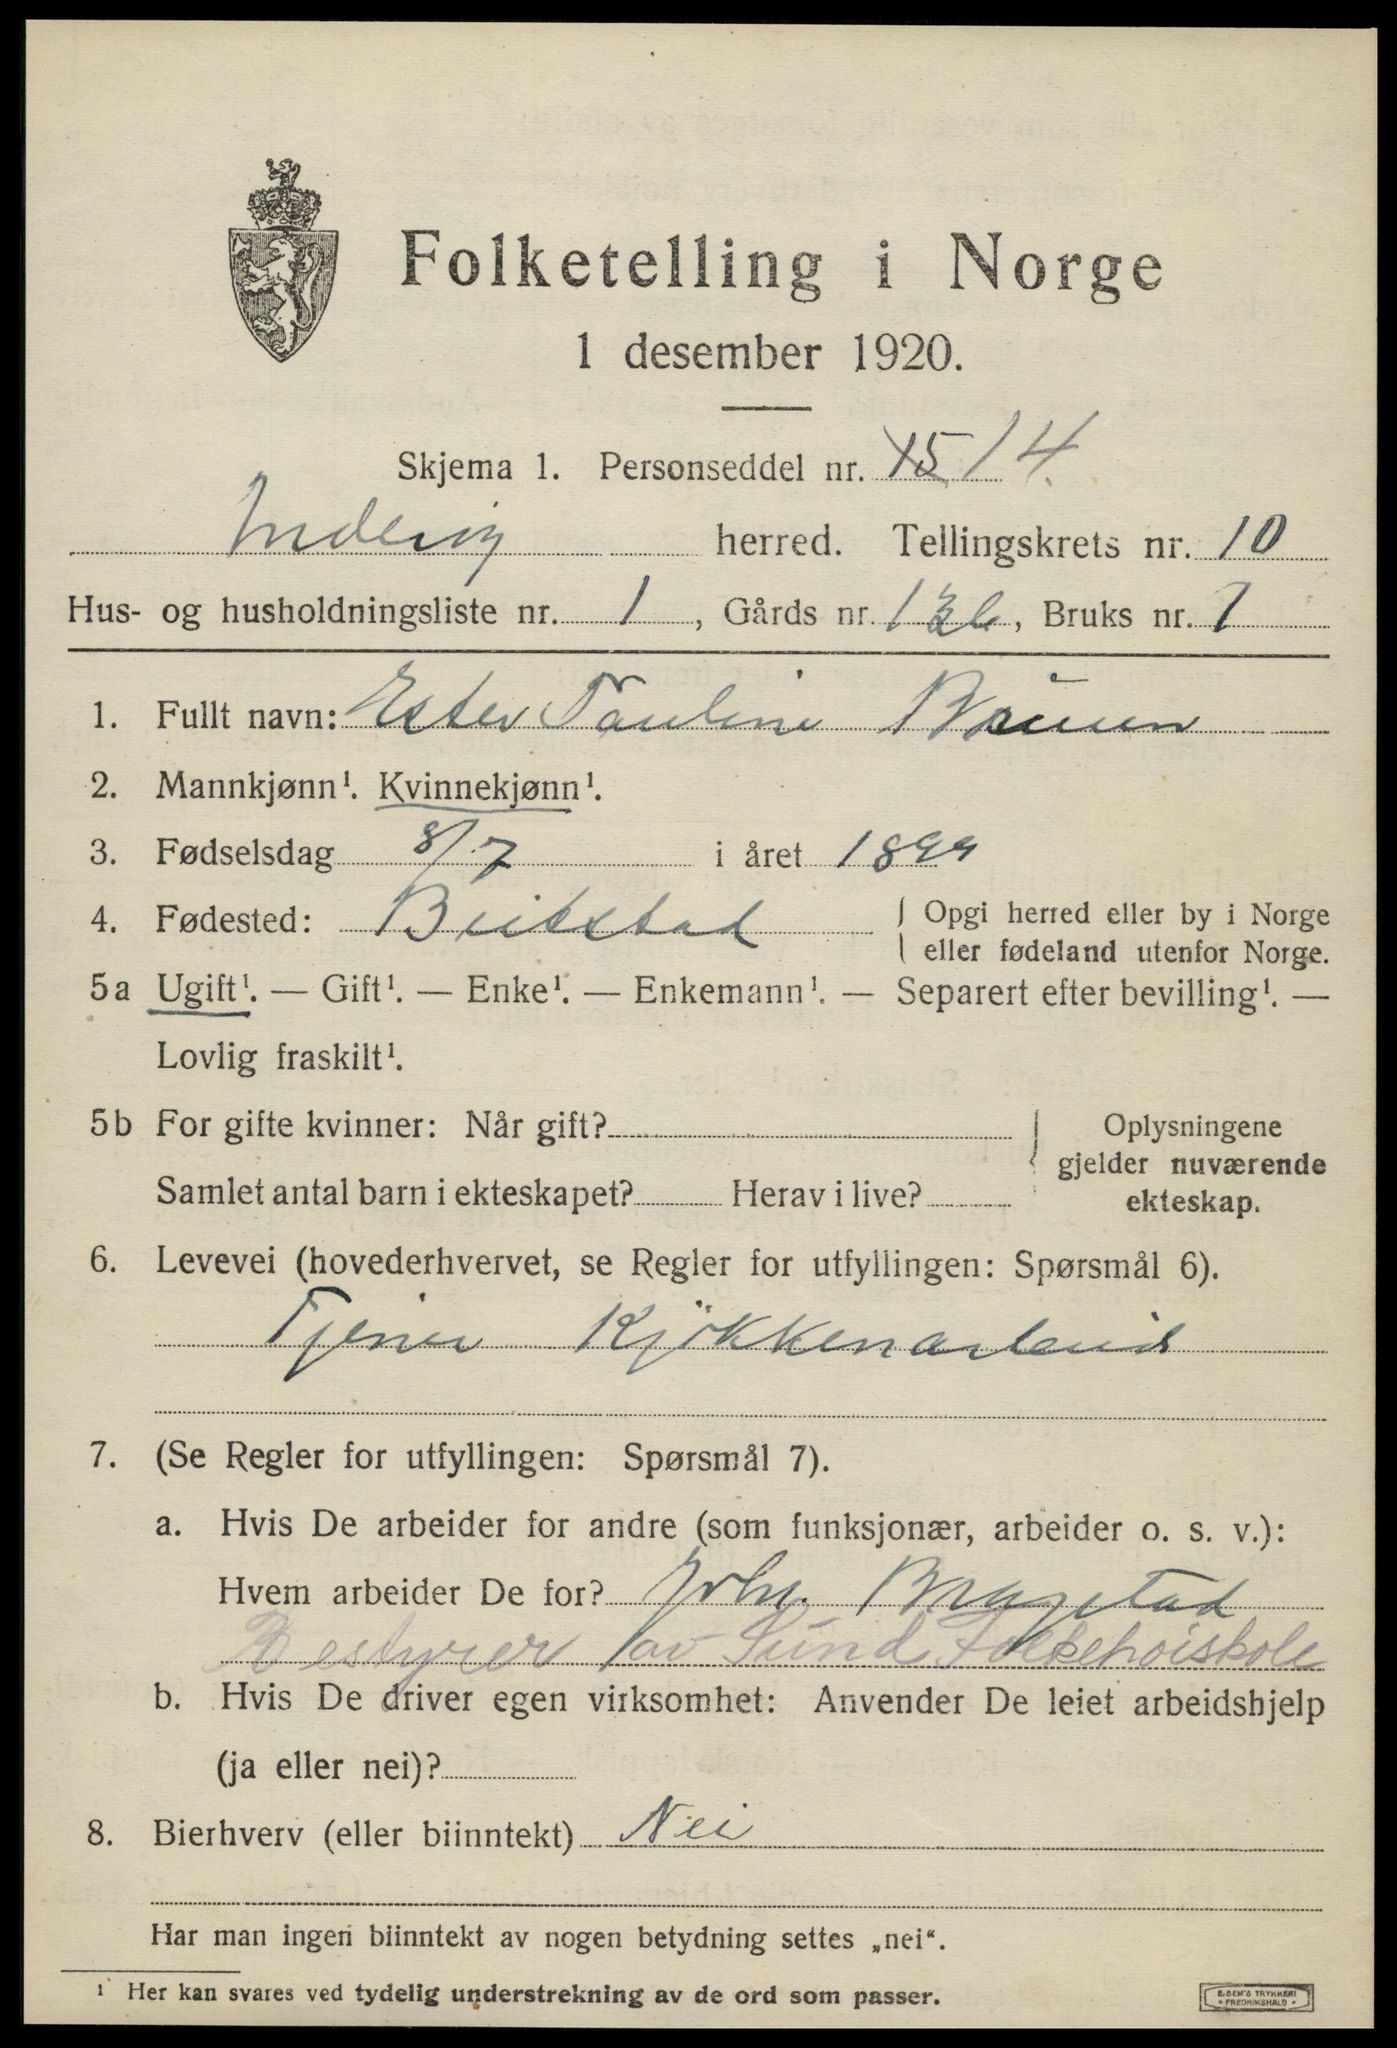 Folketelling i Norge
1 desember 1920.
Skjema 1. Personseddel nr. 15 14
Inderøy herred. Tellingskrets nr. 10
Hus- og husholdningsliste nr. 1, Gårds nr. 136, Bruks nr. 1
1. Fullt navn: Ester Pauline Bruun
2. Mannkjønn¹. Kvinnekjønn¹.
3. Fødselsdag 8/7 i året 1899
4. Fødested: Beitstad { Opgi herred eller by i Norge
eller fødeland utenfor Norge.
5a Ugift¹. — Gift¹. — Enke¹. — Enkemann¹. — Separert efter bevilling¹. —
Lovlig fraskilt¹.
5b For gifte kvinner: Når gift?
Samlet antal barn i ekteskapet? Herav i live?
Oplysningene
gjelder nuværende
ekteskap.
6. Levevei (hovederhvervet, se Regler for utfyllingen: Spørsmål 6).
Tjener Kjökkenarbeid
7. (Se Regler for utfyllingen: Spørsmål 7).
a. Hvis De arbeider for andre (som funksjonær, arbeider o. s. v.):
Hvem arbeider De for? Johs. Bragstad
Bestyrer av Sund Folkehøiskole
b. Hvis De driver egen virksomhet: Anvender De leiet arbeidshjelp
(ja eller nei)?
8. Bierhverv (eller biinntekt) Nei
Har man ingen biinntekt av nogen betydning settes „nei“.
¹ Her kan svares ved tydelig understrekning av de ord som passer.
E. SEM'S TRYKKERI
* FREDRIKSHALD *